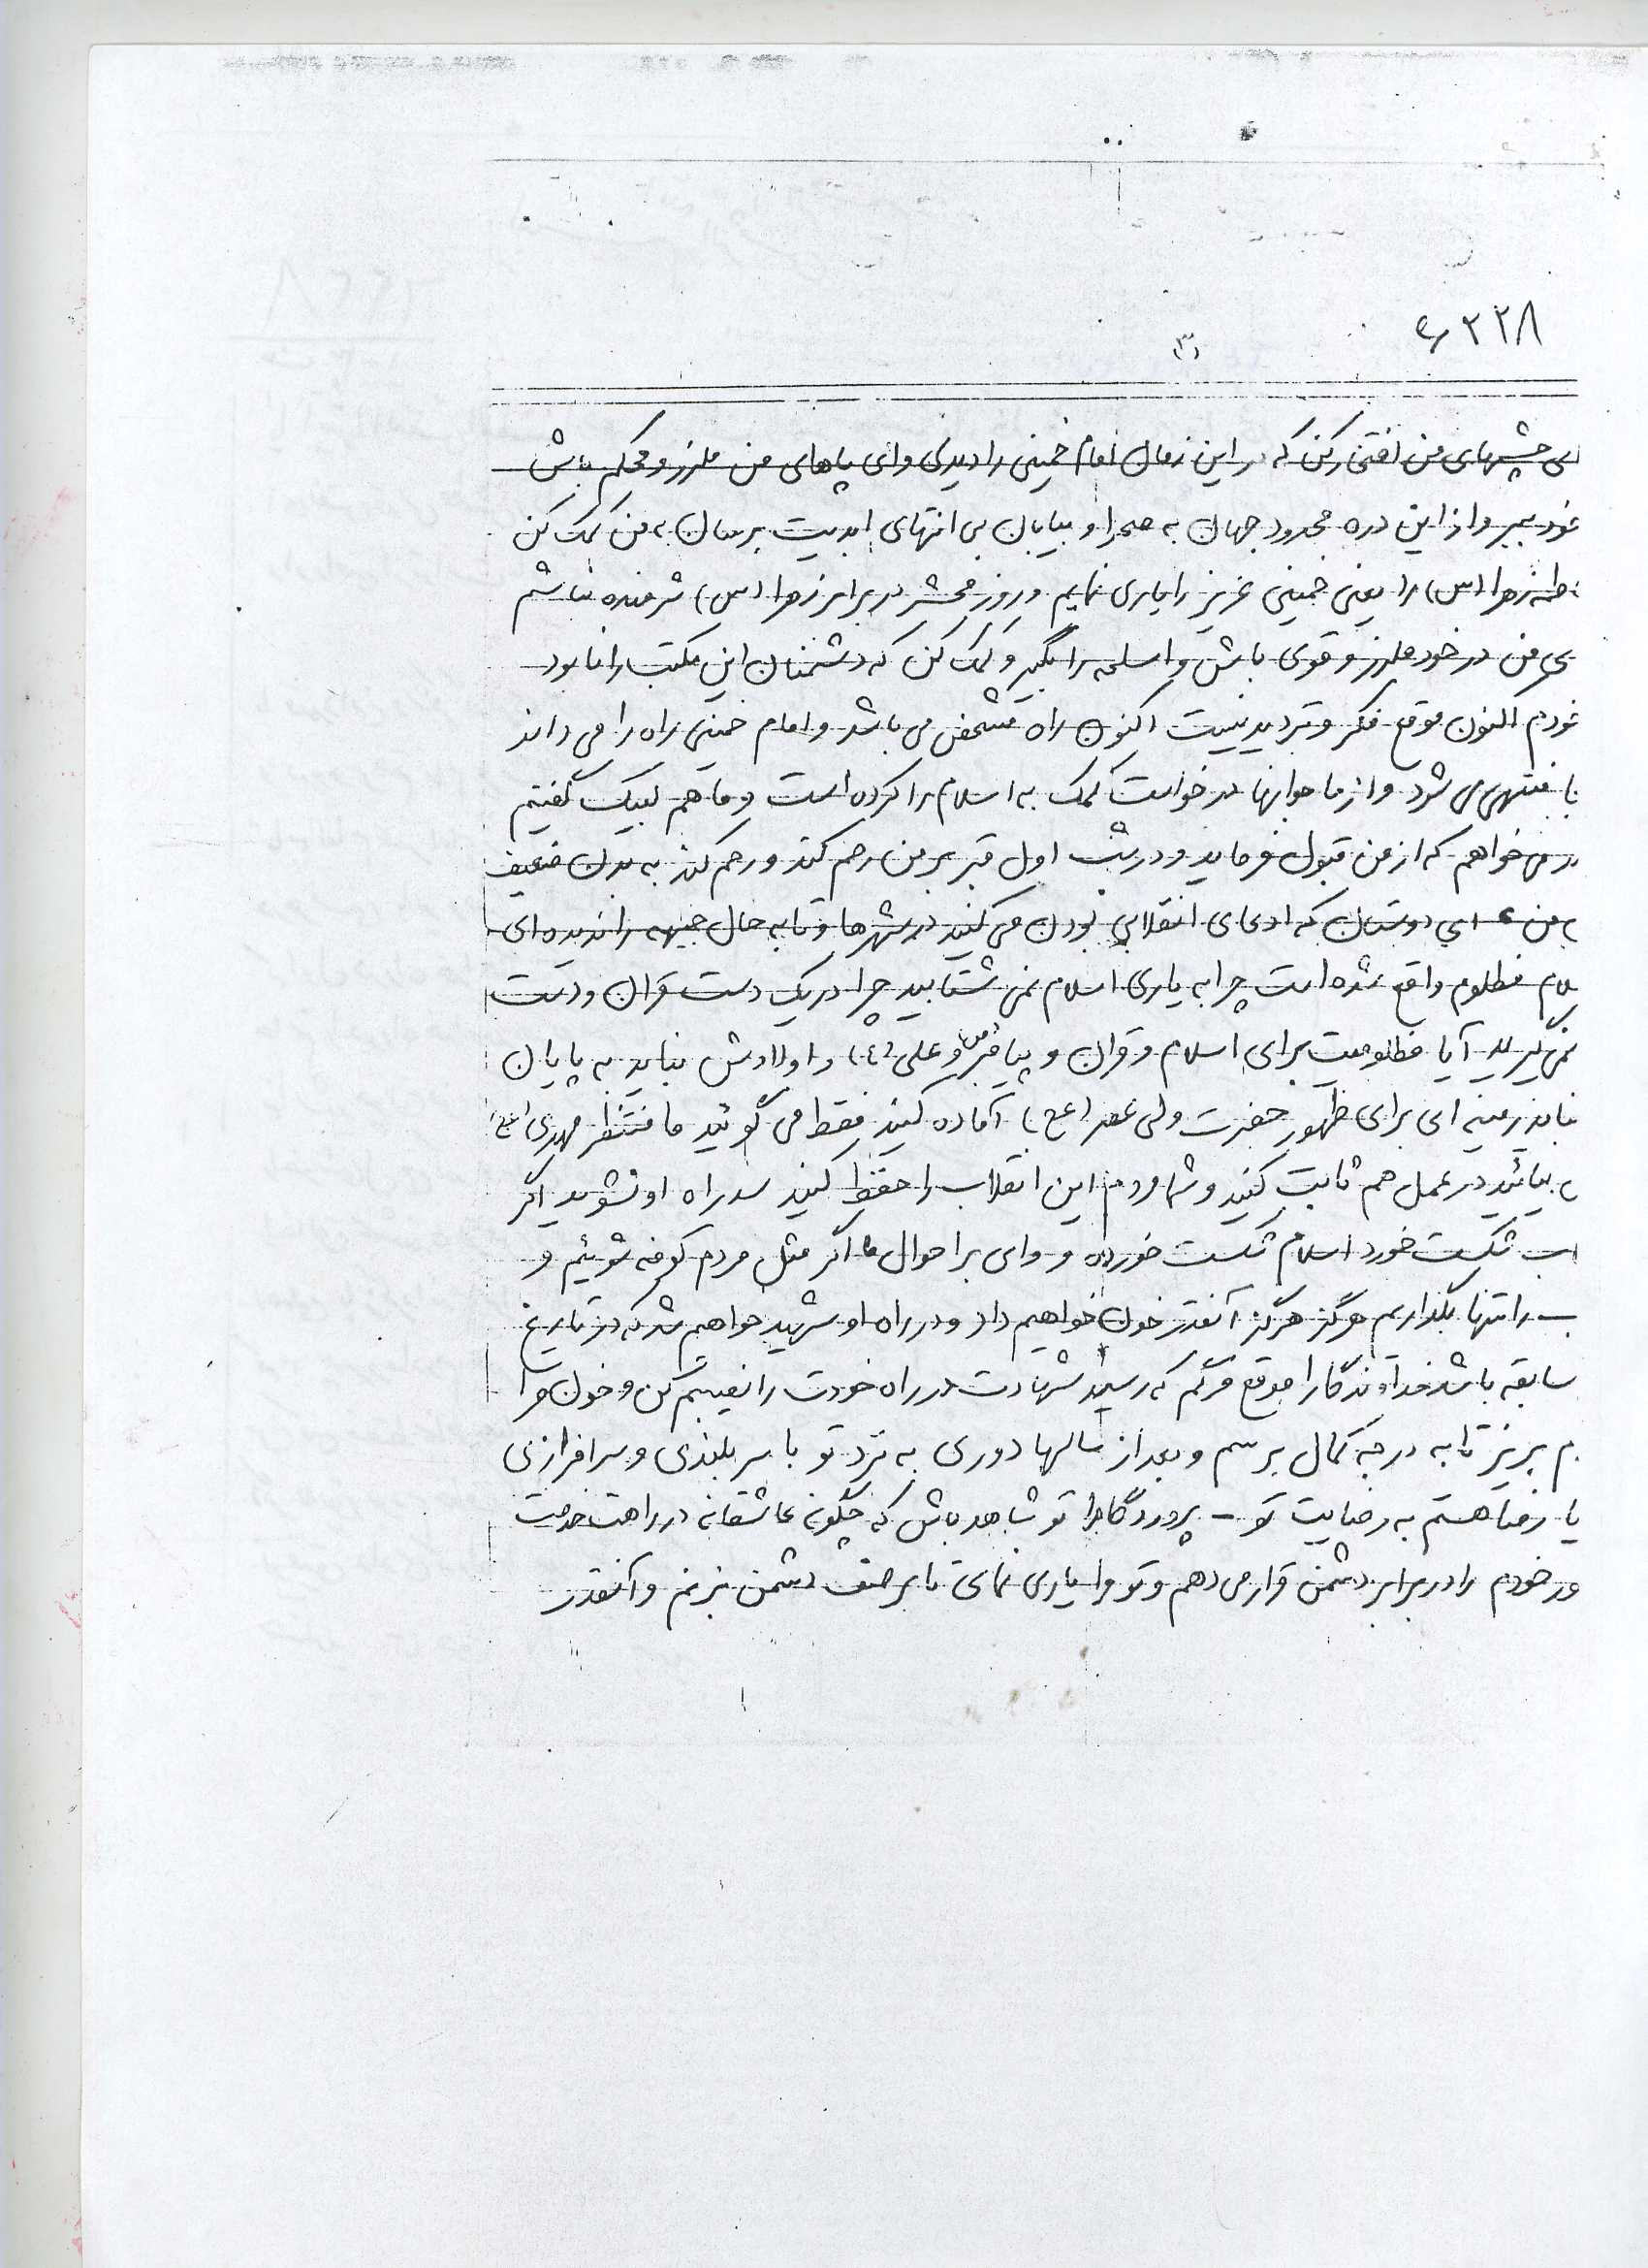 ۳
ای چشمهای من افتخار کن که در این زمان امام خمینی را دیدی و ای پاهای من ملرز و محکم باش
خود ببر و از این دره محدود جهان به صحرا و بیابان بی انتهای ابدیت برسان به من کمک کن
اطمه زهرا (س) را یعنی خمینی عزیز را یاری نمایم و روز محشر در برابر زهرا (س) شرمنده نباشم
ی من در خود ملرز و قوی باش و اسلحه را بگیر و کمک کن که دشمنان این مکتب را نابود
نمودم اکنون موقع فکر و تردید نیست اکنون راه مشخص می باشد و امام خمینی راه را می داند
منتهی می شود و از ما جوانها درخواست کمک به اسلام را کرده است و ما هم لبیک گفتیم
می خواهم که از من قبول فرماید و در شب اول قبر بر من رحم کند و رحم کند به بدن ضعیف
من ای دوستان که ادعای انقلابی بودن می کنید در شهرها و تا به حال جبهه را ندیده ای
سلام مظلوم واقع شده است چرا به یاری اسلام نمی شتابید چرا در یک دست قرآن و دست
نمی گیرید آیا مظلومیت برای اسلام و قرآن و پیامبر (ص) و علی (ع) و اولادش نباید به پایان
نباید زمینه ای برای ظهور حضرت ولی عصر (عج) آماده کنید فقط می گوئید ما منتظر مهدی (عج)
بیائید در عمل هم ثابت کنید و شما مردم این انقلاب را حفظ کنید سد راه او نشوید اگر
ب شکست خورد اسلام شکست خورده و وای بر احوال ما اگر مثل مردم کوفه شوئیم و
را تنها بگذاریم هرگز هرگز آنقدر خون خواهیم داد و در راه او شهید خواهیم شد که در تاریخ
سابقه باشد خداوندگارا موقع مرگم که رسید شهادت در راه خودت را نصیبم کن و خون مرا
م بریز تا به درجه کمال برسم و بعد از سالها دوری به نزد تو با سر بلندی و سرافرازی
یا رضا هستم به رضایت تو - پروردگارا تو شاهد باش که چگونه عاشقانه در راهت خدمت
خودم را در برابر دشمن قرار می دهم و تو مرا یاری نمای تا بر صف دشمن بزنم و آنقدر